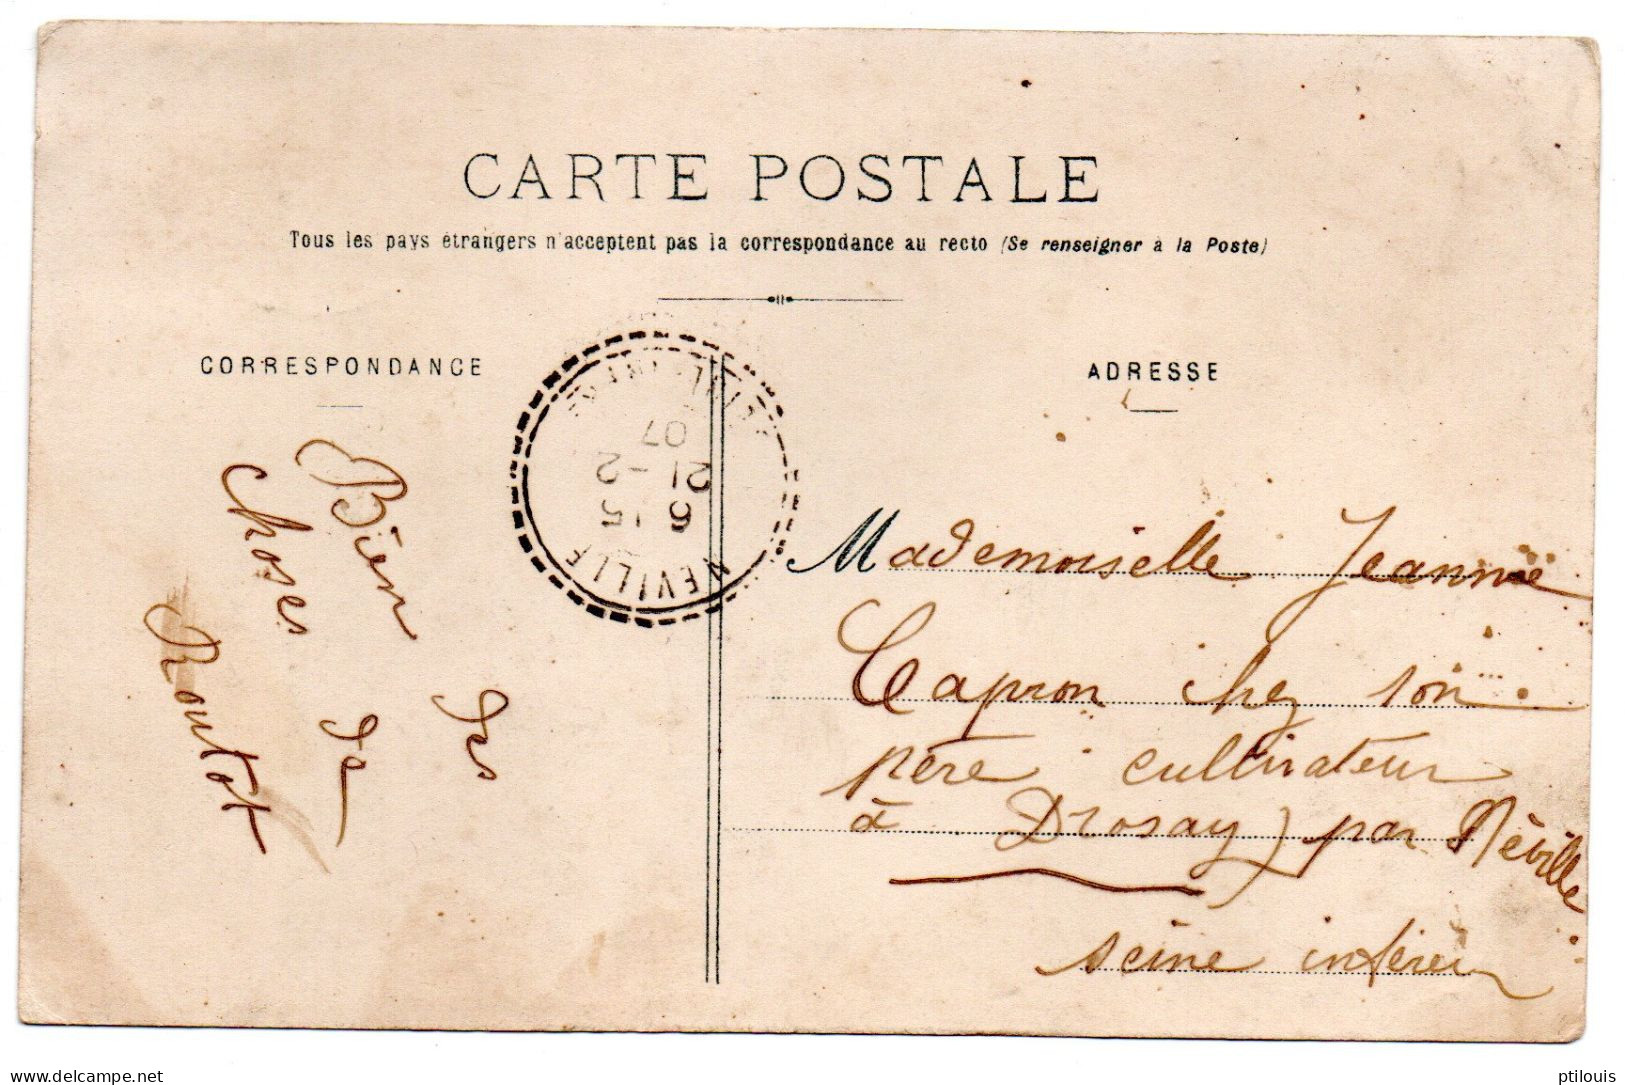 CARTE POSTALE
Tous les pays étrangers n'acceptent pas la correspondance au recto (Se renseigner à la Poste)
CORRESPONDANCE
ADRESSE
Bien des
choses de
Routot
NEVILLE
6 15
21-2
07
Mademoiselle Jeanne
Capron chez son
père cultivateur
à Drosay par Néville
seine inférieu
ptilouis